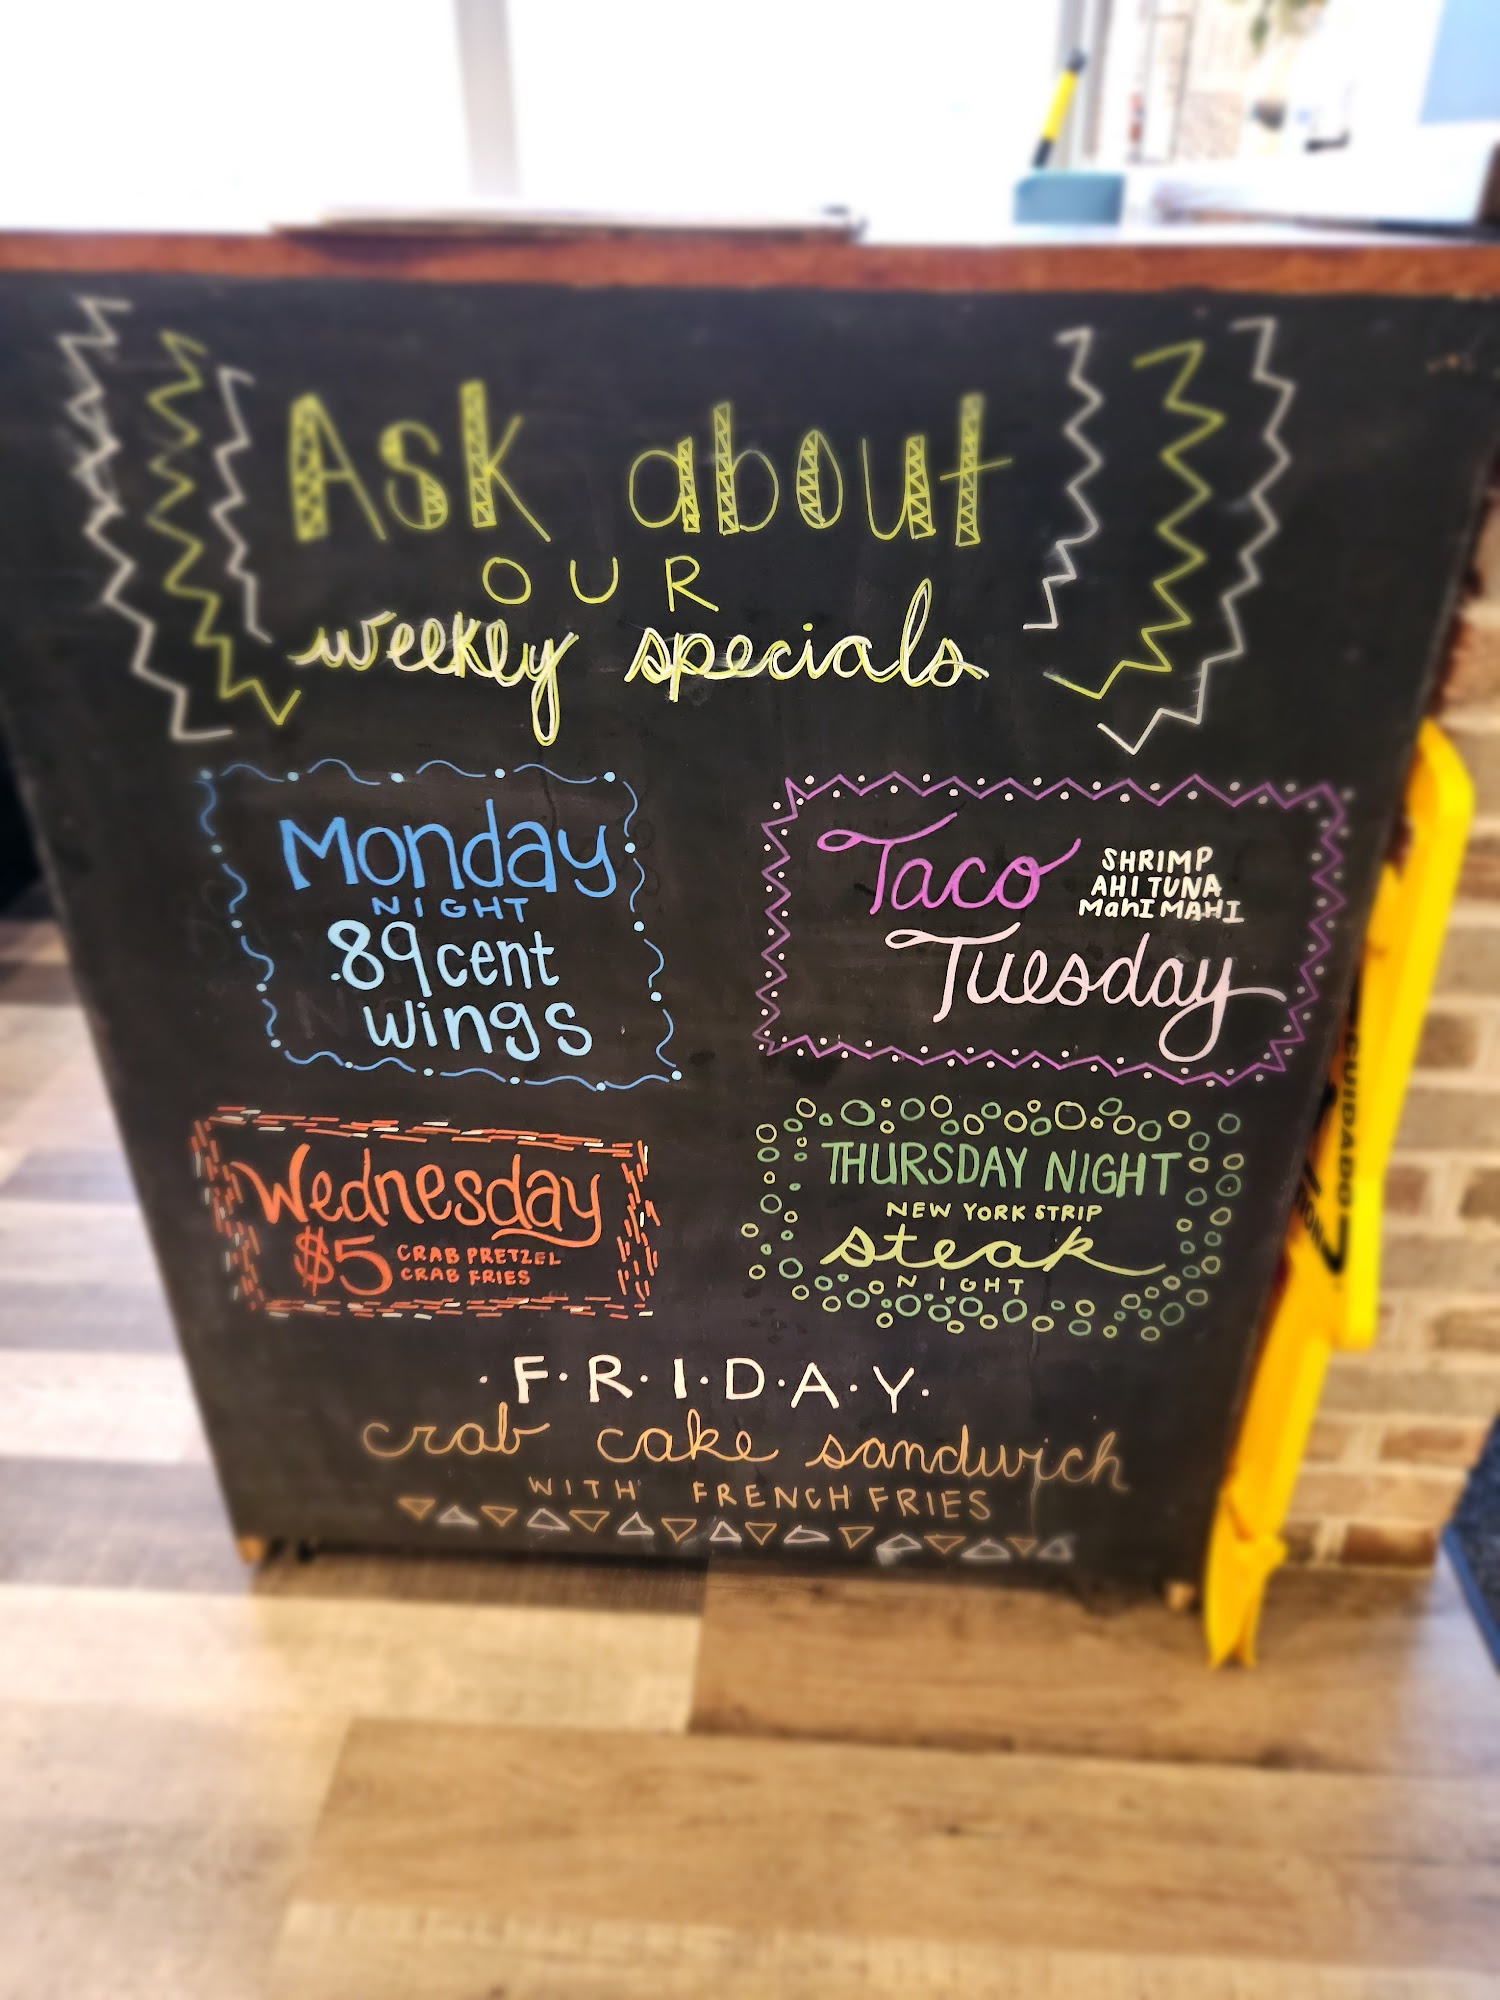 Ask about
OUR
weekly specials
Monday
NIGHT
.89 cent
wings
Taco
SHRIMP
AHI TUNA
MahI MAHI
Tuesday
Wednesday
$5
CRAB PRETZEL
CRAB FRIES
THURSDAY NIGHT
NEW YORK STRIP
steak
NIGHT
·F·R·I·D·A·Y·
crab cake sandwich
WITH FRENCH FRIES
CUIDADO